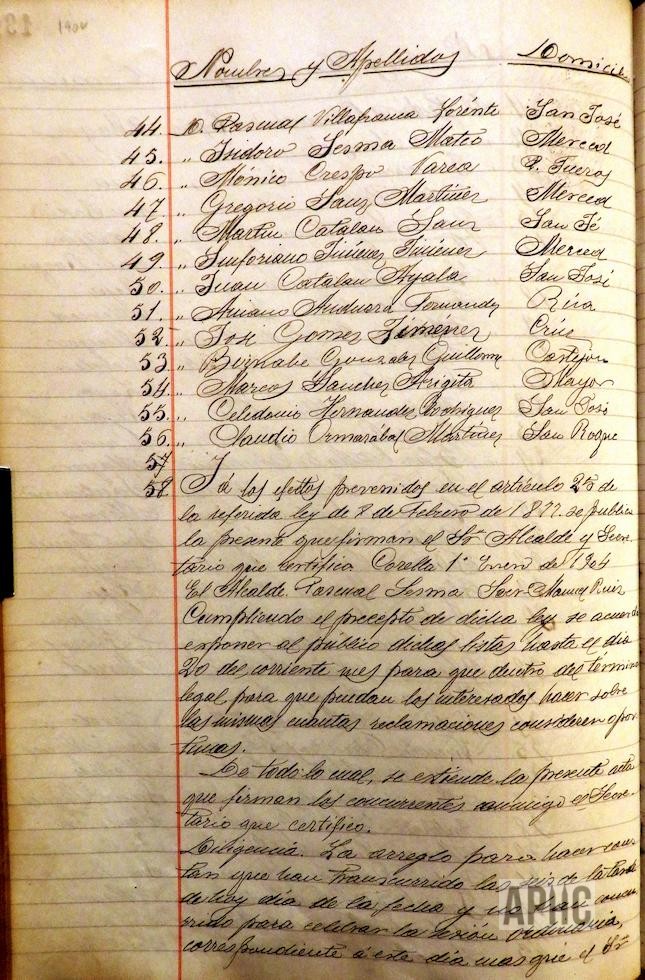 1904
Nombres y Apellidos Domici
44. D. Pascual Villafranca Lorente San José
45. " Isidoro Sesma Mateo Merced
46. " Mónico Crespo Varea P. Fueros
47. " Gregorio Sanz Martinez Merced
48. " Martin Catalan Sanz San José
49. " Sinforiano Jiménez Jiménez Merced
50. " Juan Catalan Ayala San José
51. " Andueza Fernandez Rúa
52. " José Gomez Jiménez Crúz
53. " Bernabe Gonzalez Guillorme Castejon
54. " Marcos Sanchez Arigita Mayor
55. " Celedonio Hernandez Rodriguez San José
56. " Claudio Ormazábal Martinez San Roque
57
58. Y á los efectos prevenidos en el artículo 25 de
la referida ley de 8 de Febrero de 1877. se publica
la presente que firman el Sr Alcalde y Secre-
tario que certifica Corella 1º Enero de 1904
El Alcalde. Pascual Sesma Manuel Ruiz
Cumpliendo el precepto de dicha ley se acuerda
exponer al público dichas listas hasta el dia
20 del corriente mes para que dentro del término
legal para que puedan los interesados hacer sobre
las mismas cuantas reclamaciones consideren opor-
tunas.
De todo lo cual, se extiende la presente acta
que firman los concurrentes conmigo el Secre-
tario que certifico.
Diligencia. La arreglo para hacer cons
tar que han transcurrido las seis de la tarde
de hoy dia de la fecha y no han concu
rrido para celebrar la sesión ordinaria,
correspondiente á este dia mas que el Sr
APHC